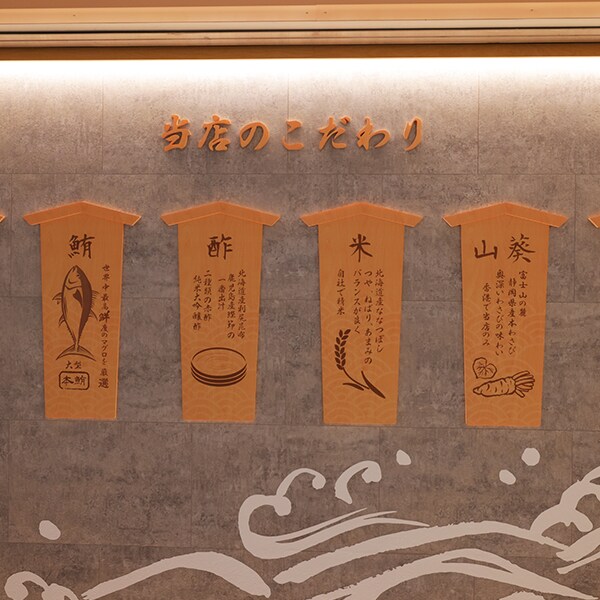 当店のこだわり
鮪
世界中最高鮮度のマグロを厳選
大型
本鮪
酢
北海道産利尻昆布
鹿児島産鰹節の
一番出汁
二種類の赤酢
純米大吟醸酢
米
北海道産ななつぼし
つや、ねばり、あまみの
バランスがよく
自社で精米
山葵
富士山の麓
静岡県産本わさび
奥深いわさびの味わい
香港で当店のみ